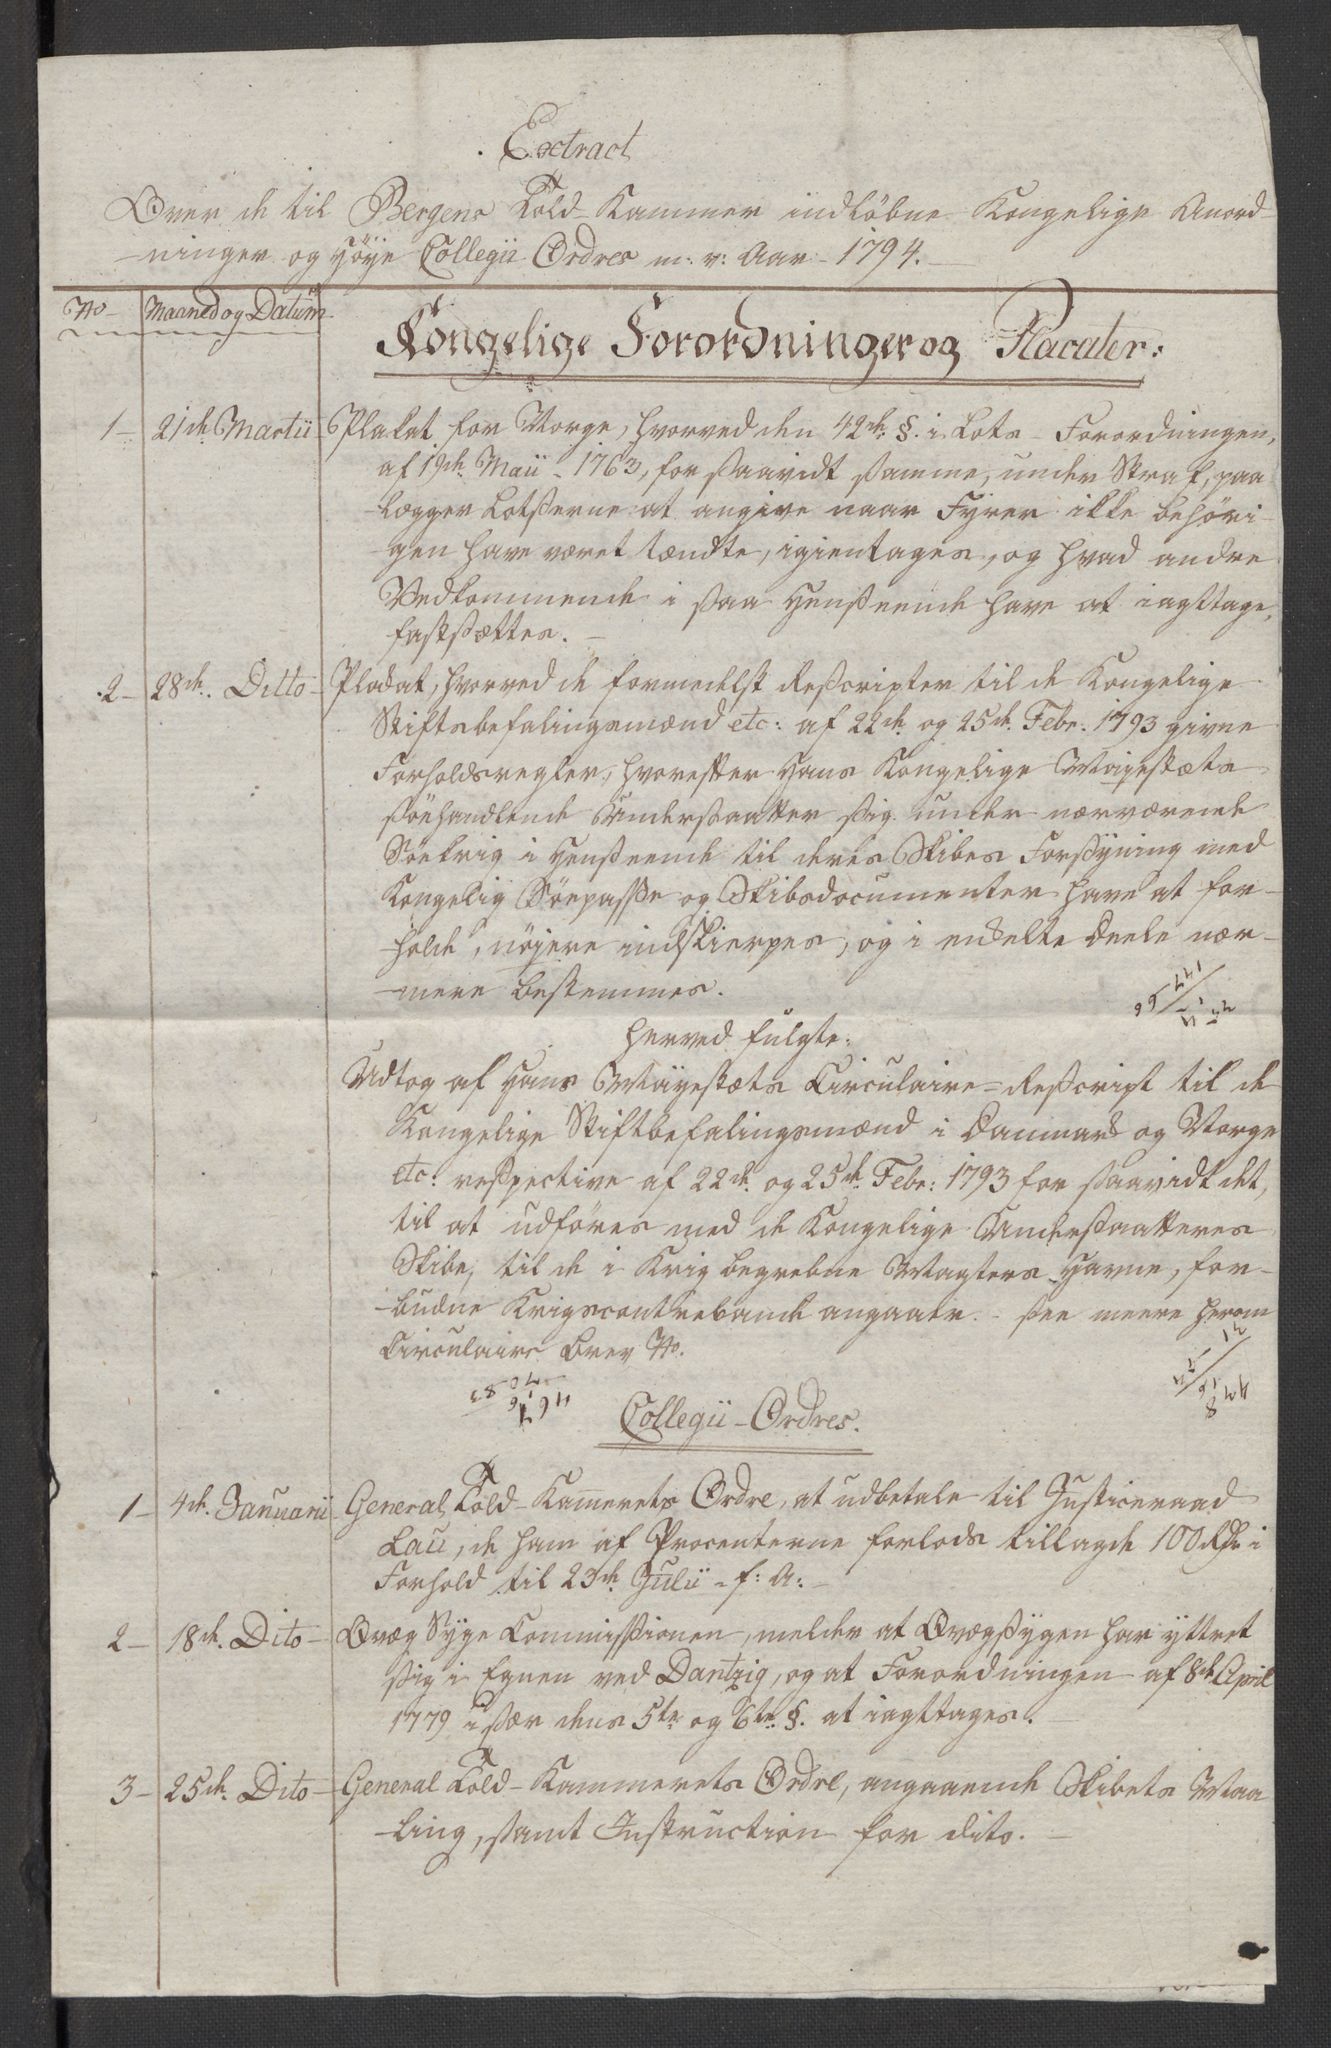 Extract
Over de til Bergens Told-Kammer indløbne Kongelige Anord-
-ninger og Høÿe Collegii Ordres m: v: Aar 1794.
No Maaned og Datum
Kongelige Forordninger og Placater:
1 - 21de Martii - Plakat for Norge, hvorved den 42de §. i Lots-Forordningen,
af 19de Maii 1763, for saavidt samme, under Straf, paa
lægger Lotserne at angive naar Fyrer ikke behøri-
-gen have været tændte, igientages, og hvad andre
Vedkommende i saa Henseende have at iagttage,
fastsættes. -
2 - 28de Ditto - Plackat, hvorved de formedelst Rescripter til de Kongelige
Stiftsbefalingsmænd etc: af 22de og 25de Febr: 1793 givne
Forholdsregler, hvorefter Hans Kongelige Majestæts
søehandlende Undersaatter sig under nærværende
Søekrig i Henseende til deres Skibes Forsyning med
Kongelig Søepasse og Skibsdocumenter have at for-
-holde, nøjere indskierpes, og i endeel Deele nær-
-mere bestemmes.
Herved fulgte:
Udtog af Hans Majestæts Circulaire-Rescript til de
Kongelige Stiftbefalingsmænd i Danmark og Norge
etc: respective af 22de og 25de Febr: 1793 for saavidt det,
til at udføres med de Kongelige Undersaatteres
Skibe, til de i Krig begrebne Magters Havne, for-
-budne Krigscontrebande angaaer. - see meere herom
Circulaire Brev No.
Collegii-Ordres.
1 - 4de Januarii General Told-Kamerets Ordre, at udbetale til Justiceraad
Lau, de ham af Procenterne forlods tillagde 100 Rdr i
Forhold til 23de Julii f: A: -
2 - 18de Dito - Qvæg Syge Commissionen, melder at Qvægsygen har yttret
sig i Egnen ved Dantzig, og at Forordningen af 8de April
1779 især dens 5te og 6te §. at iagttages. -
3 - 25de Dito - General Told-Kammerets Ordre, angaaende Skibets Maa
-ling, samt Instruction for dito. -